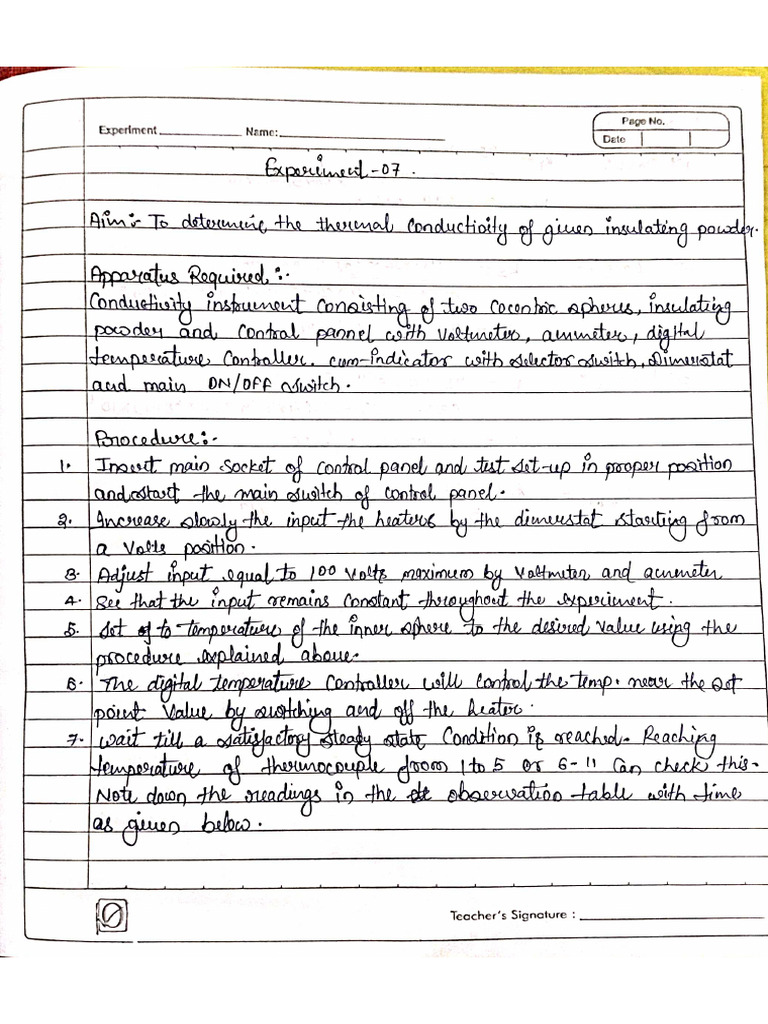 Experiment Name:
Page No.
Date
Experiment -07.
Aim:- To determine the thermal conductivity of given insulating powder.
Apparatus Required:-
Conductivity instrument consisting of two cocentric spheres, insulating
powder and control pannel with voltmeter, ammeter, digital
temperature controller. cum-indicator with selector switch, Dimerstat
and main ON/OFF switch.
Procedure:-
1. Insert main socket of control panel and test set-up in proper position
and start the main switch of control panel.
2. Increase slowly the input the heaters by the dimerstat starting from
a volts position.
3. Adjust input equal to 100 volts maximum by voltmeter and ammeter
4. See that the input remains constant throughout the experiment.
5. Set to temperature of the inner sphere to the desired value using the
procedure explained above.
6. The digital temperature controller will control the temp. near the set
point value by switching and off the heater.
7. Wait till a satisfactory steady state condition is reached. Reaching
temperature of thermocouple from 1 to 5 or 6-11 can check this.
Note down the readings in the observation table with time
as given below.
Teacher's Signature :